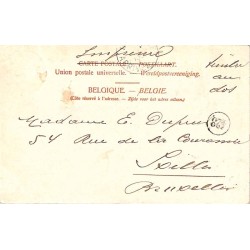 Imprimé
CARTE POSTALE — POSTKAART
Union postale universelle. — Wereldpostvereeniging.
BELGIQUE - BELGIE
(Côté réservé à l'adresse. - Zijde voor het adres alleen.)
timbre
au
dos
Madame E. Dupreu
54 Rue de la Couronne
Ixelles
Bruxelles